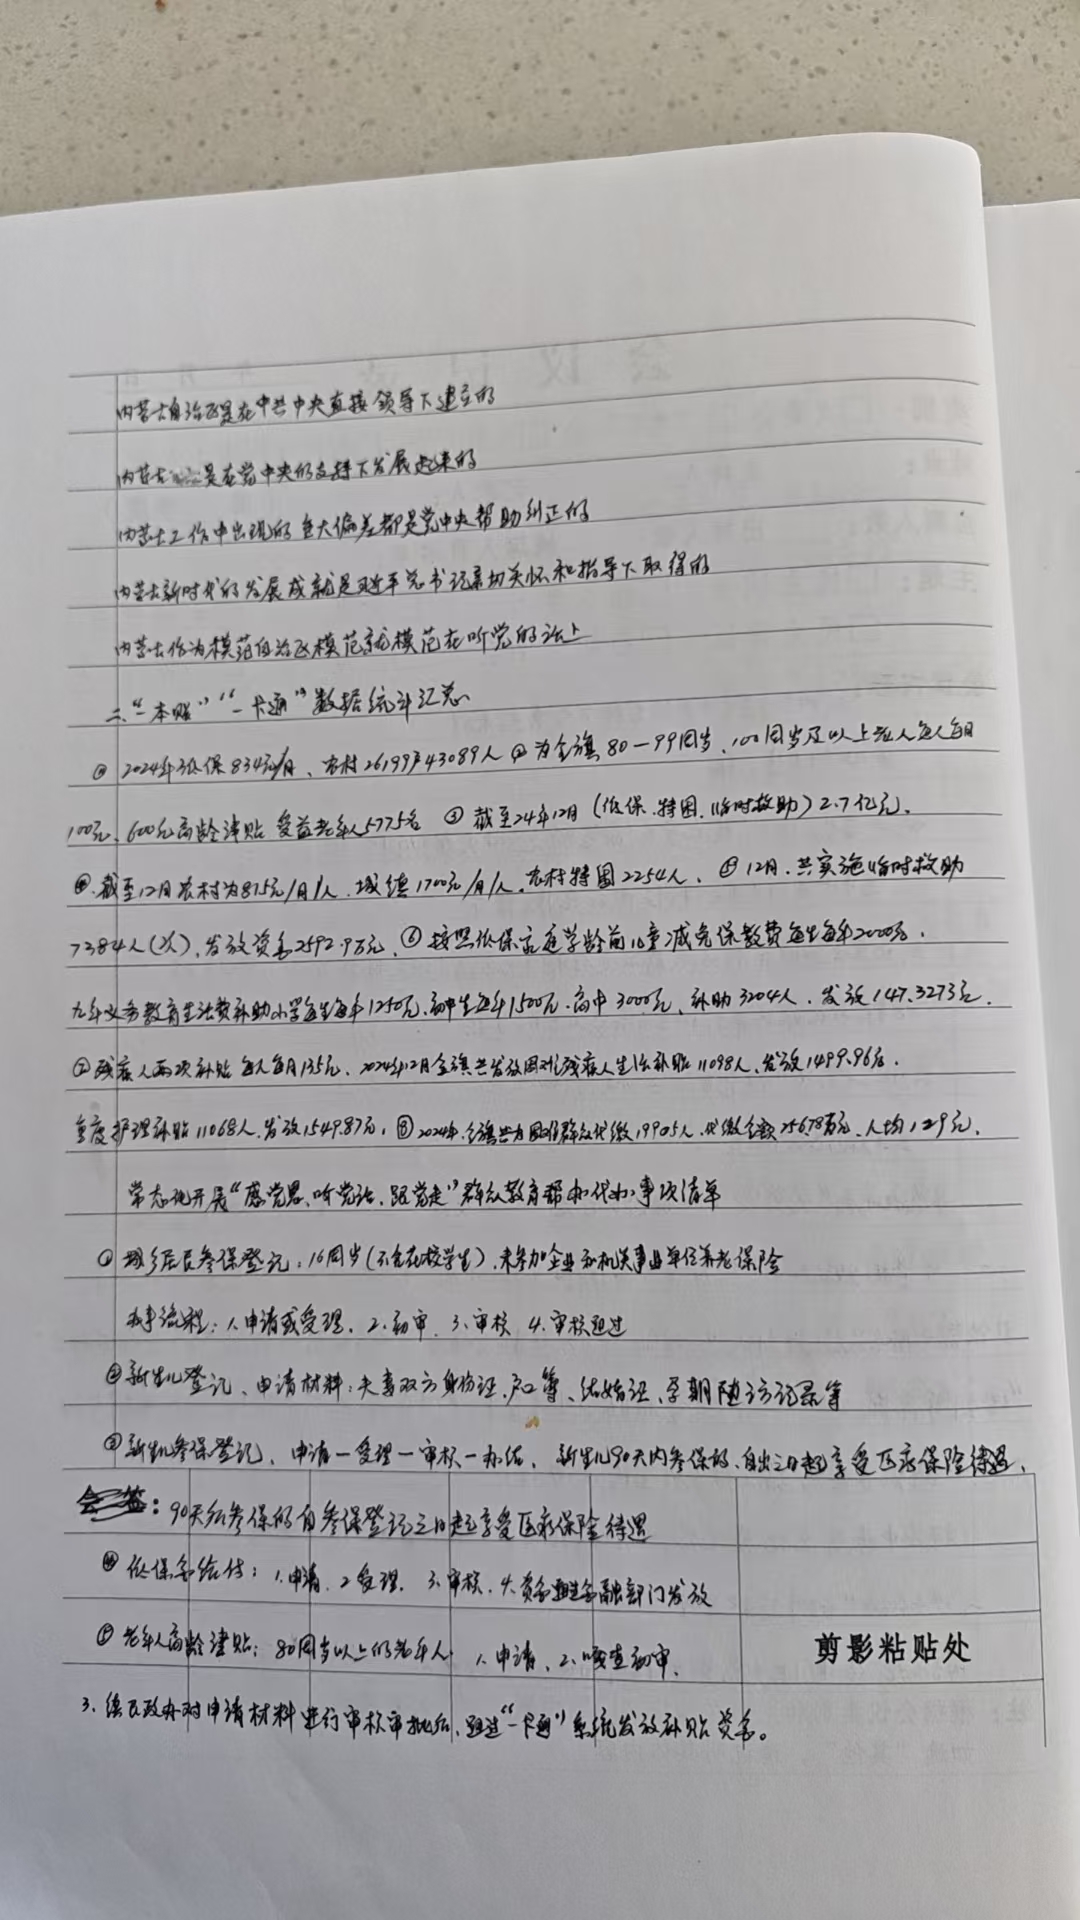 内蒙古自治区是在中共中央直接领导下建立的
内蒙古是在党中央的支持下发展起来的
内蒙古工作中出现的重大偏差都是党中央帮助纠正的
内蒙古新时代的发展成就是习近平总书记亲切关怀和指导下取得的
内蒙古作为模范自治区模范就模范在听党的话上
二、“一本账”“一卡通”数据统计汇总
① 2024年低保834元/月、农村26199户43089人 ② 为全旗80-99周岁、100周岁及以上老人每人每月
100元、600元高龄津贴 受益老年人5775名 ③ 截至24年12月(低保.特困.临时救助)2.7亿元.
④.截至12月农村为875元/月/人.城镇1700元/月/人.农村特困2254人、⑤ 12月.共实施临时救助
7384人(次)、发放资金2592.9万元、⑥ 按照低保家庭学龄前儿童减免保教费每生每年2000元.
九年义务教育生活费补助小学每生每年1250元、初中生每年1500元.高中3000元、补助3204人、发放147.3273元.
⑦残疾人两项补贴 每人每月135元、2024年12月全旗共发放困难残疾人生活补贴11098人、发放1499.96万.
重度护理补贴11068人.发放1549.87元, ⑧ 2024年.全旗共为困难群众代缴19905人.代缴金额256.78万元、人均129元.
常态化开展“感党恩、听党话、跟党走”群众教育帮办代办事项清单
① 城乡居民参保登记: 16周岁(不含在校学生).未参加企业和机关事业单位养老保险
办事流程: 1.申请或受理. 2.初审. 3.审核 4.审核通过
② 新生儿登记、申请材料:夫妻双方身份证.户口簿、结婚证、孕期随访记录等
③ 新生儿参保登记、申请一受理一审核一办结、新生儿90天内参保的.自出生之日起享受医疗保险待遇.
会签: 90天后参保的自参保登记之日起享受医疗保险待遇
④ 低保金给付: 1.申请. 2受理. 3.审核. 4.资金通过金融部门发放
⑤ 老年人高龄津贴: 80周岁以上的老年人 1.申请、2.嘎查初审.
剪影粘贴处
3.镇民政办对申请材料进行审核审批后,通过“一卡通”系统发放补贴资金。